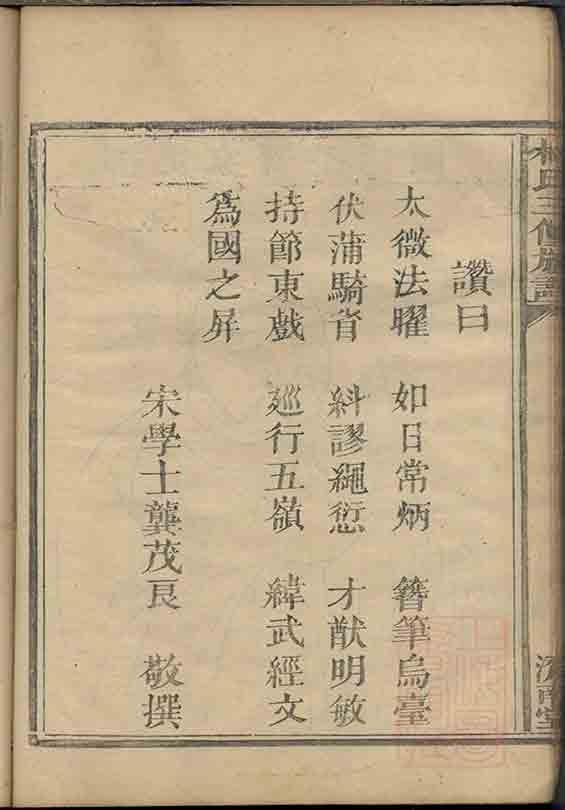 讚曰
太微法曜　如日常炳　簪筆烏臺
伏蒲騎省　糾謬繩愆　才猷明敏
持節東戲　廵行五嶺　緯武經文
為國之屏
宋學士龔茂良　敬撰